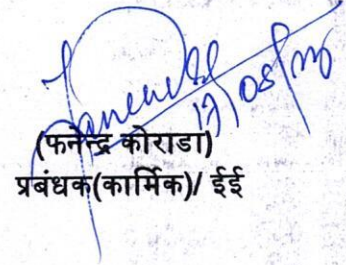 17/08/
(फनेन्द्र कोराडा)
प्रबंधक(कार्मिक)/ ईई